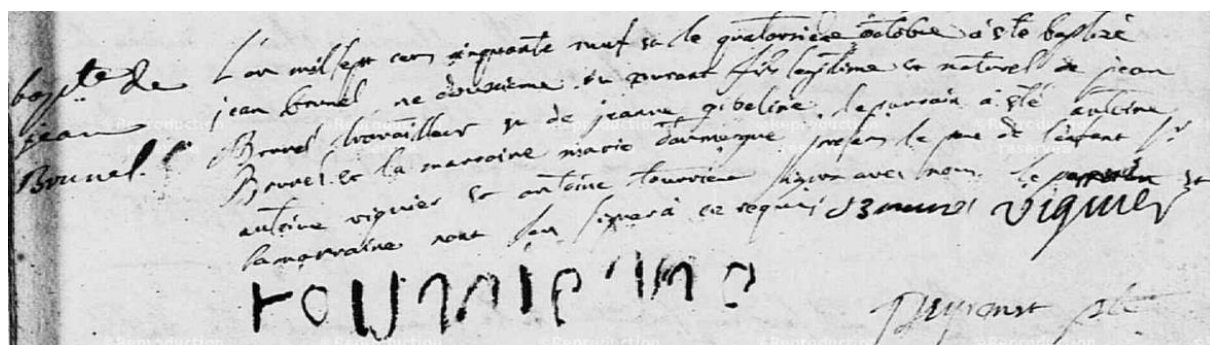 bapte de
jean
Brunel
L'an mil sept cens cinquante neuf et le quatorzieme octobre à eté baptizé
jean brunel né douzieme du courant fils legitime et naturel de jean
Brunel travailleur et de jeanne gibeline le parrain à eté antoine
Brunel et la marraine marie presens le pere de l'enfant Sr
antoine viguier et antoine tourriere signes avec nous le et
la marraine nont seu signer à ce requis Brunel viguier